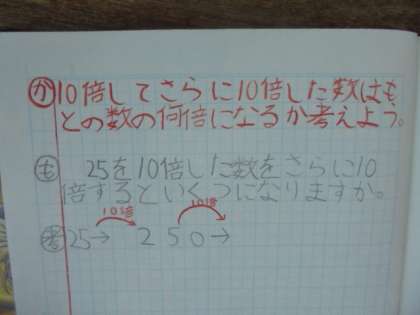 か 10倍してさらに10倍した数はも
との数の何倍になるか考えよう。
も 25を10倍した数をさらに10
倍するといくつになりますか。
10倍 10倍
考 25→ 250→